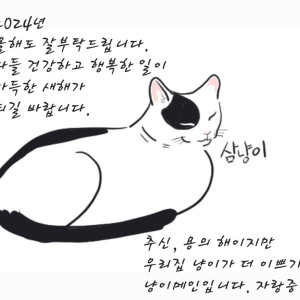 2024년
올해도 잘부탁드립니다.
다들 건강하고 행복한 일이
가득한 새해가
되길 바랍니다.
삼냥이
추신, 용의 해이지만
우리집 냥이가 더 이쁘기
냥이메인입니다. 자랑중